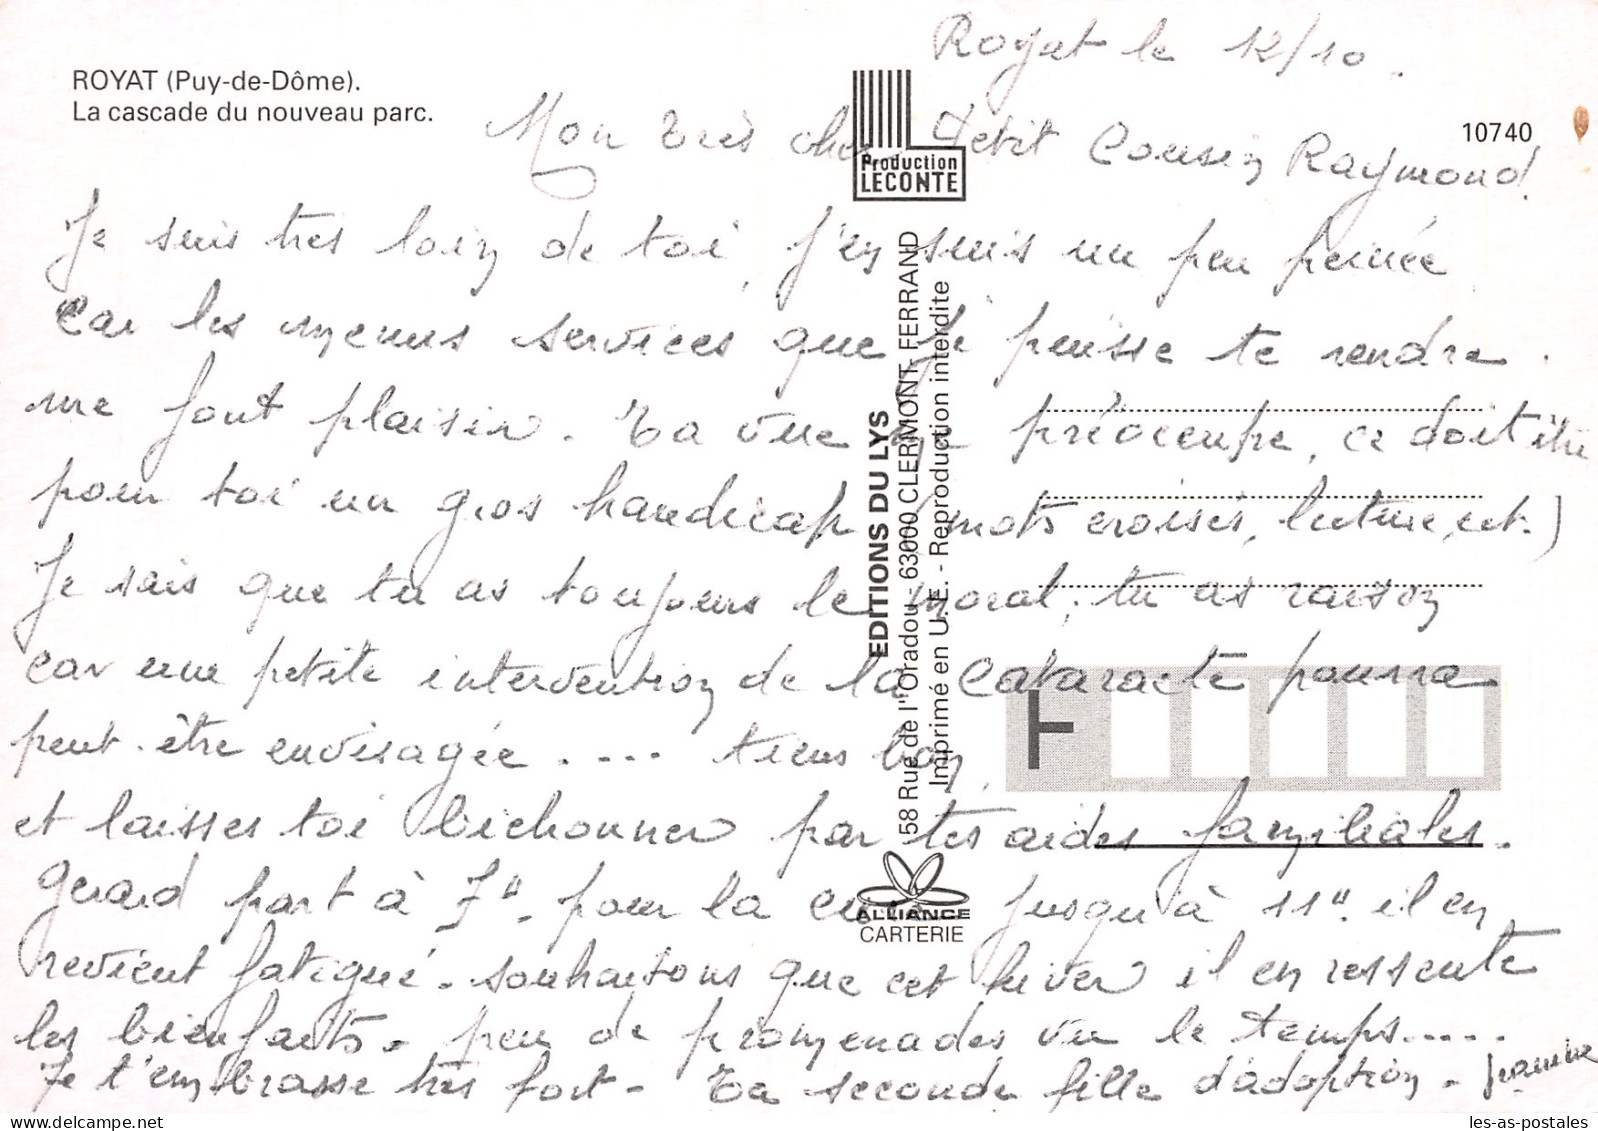 Royat le 12/10.
ROYAT (Puy-de-Dôme).
La cascade du nouveau parc.
Production
LECONTE
10740
Mon très cher Petit Cousin Raymond
Je suis très loin de toi, j'en suis un peu peinée
car les menus services que je puisse te rendre.
me font plaisir. Ta vue me préoccupe, ce doit être
pour toi un gros handicap (mots croisés, lecture, ect.)
Je sais que tu as toujours le moral, tu as raison
car une petite intervention de la Cataracte pourra
peut-être envisagée.... tiens bon,
et laisses toi bichonner par tes aides familiales.
Gérard part à 7h. pour la cure jusqu'à 11h. il en
revient fatigué. souhaitons que cet hiver il en ressente
les bienfaits. peu de promenades vu le temps.....
Je t'embrasse très fort. Ta seconde fille d'adoption. Jeannine
EDITIONS DU LYS
58 Rue de l'Oradou - 63000 CLERMONT-FERRAND
Imprimé en U.E. - Reproduction interdite
F
ALLIANCE
CARTERIE
les-as-postales